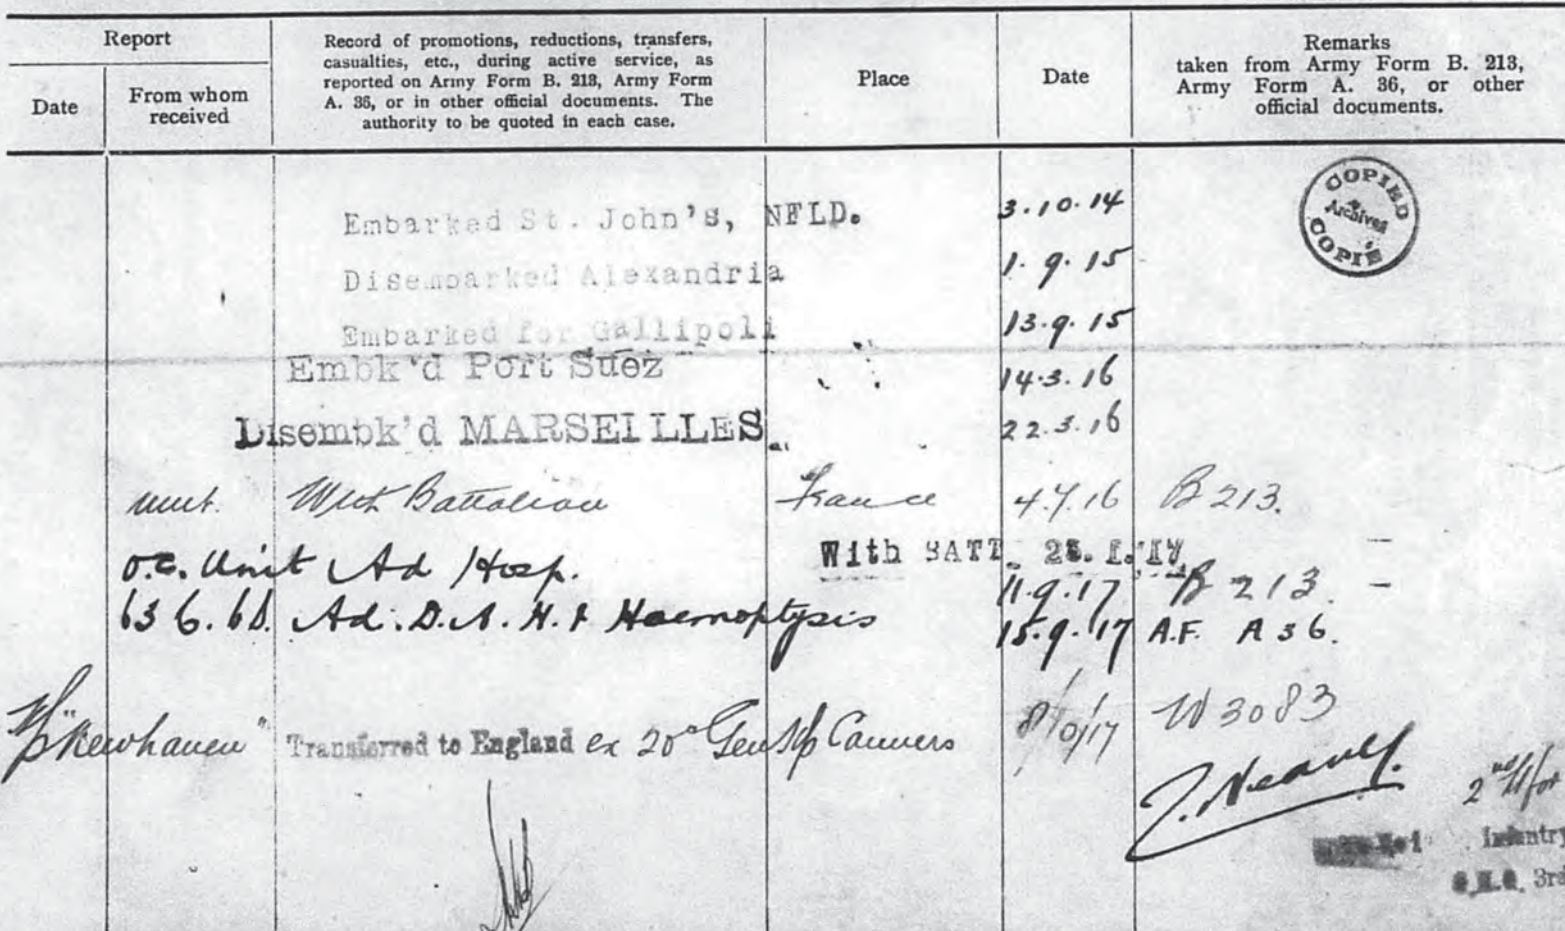 Report
Date
From whom
received
Record of promotions, reductions, transfers,
casualties, etc., during active service, as
reported on Army Form B. 213, Army Form
A. 36, or in other official documents. The
authority to be quoted in each case.
Place
Date
Remarks
taken from Army Form B. 213,
Army Form A. 36, or other
official documents.
COPIED
Archives
COPIÉ
Embarked St. John's, NFLD. 3.10.14
Disembarked Alexandria 1.9.15
Embarked for Gallipoli 13.9.15
Embk'd Port Suez 14.3.16
Disembk'd MARSEILLES 22.3.16
unit. With Battalion France 4.7.16 B 213.
With BATT.
O.C. Unit Ad Hosp. 11.9.17 B 213. -
Ad. Haemoptysis 15.9.17 A.F. A 36.
Transferred to England ex 20 Gen 8/10/17 W 3083
2nd Lt for
Infantry
3rd